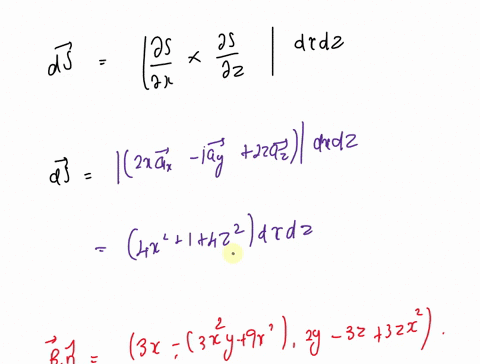 dS⃗ = |∂S/∂x × ∂S/∂z| dxdz
dS⃗ = |(2x a⃗x − 1a⃗y + 2z a⃗z)| dxdz
= (4x² + 1 + 4z²) dxdz
B⃗.n⃗ = (3x − (3x²y + 9x²), 2y − 3z + 3zx²).